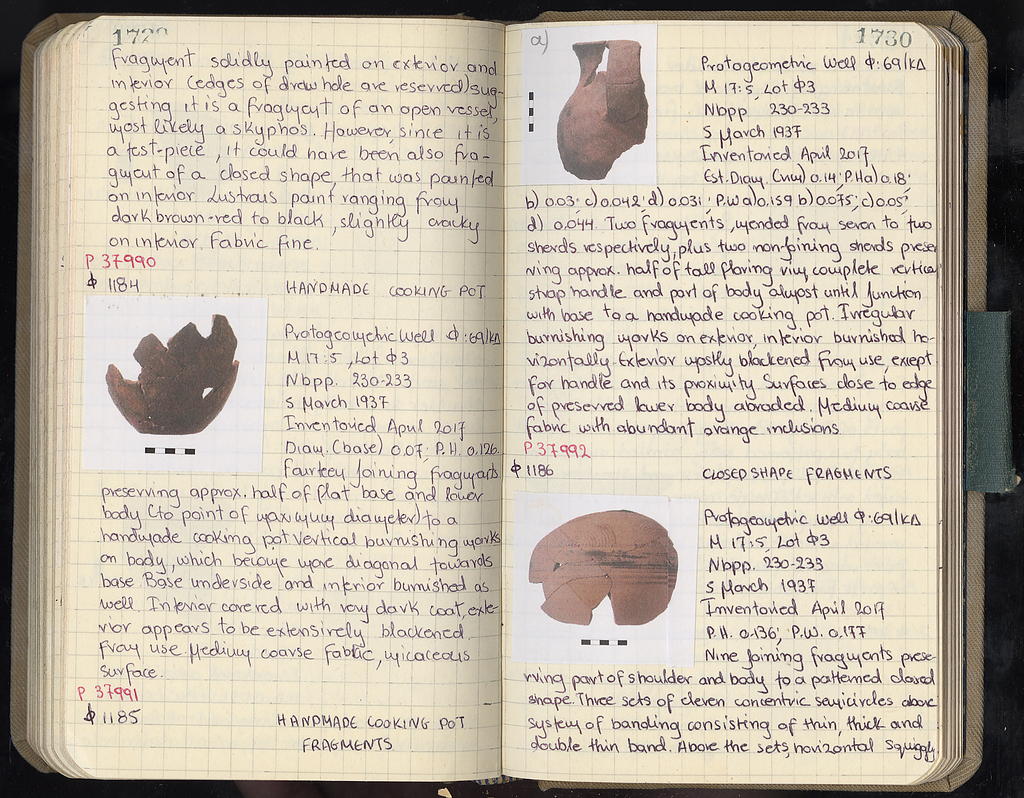 1729
fragment solidly painted on exterior and
interior (edges of draw hole are reserved) sug-
gesting it is a fragment of an open vessel,
most likely a skyphos. However, since it is
a test-piece, it could have been also fra-
gment of a closed shape, that was painted
on interior. Lustrous paint ranging from
dark brown-red to black, slightly cracky
on interior. Fabric fine.
P 37990
ϕ 1184 HANDMADE COOKING POT
Protogeometric Well Φ:69/ΚΔ
M 17:5, Lot Φ3
Nbpp. 230-233
5 March 1937
Inventoried April 2017
Diam. (base) 0.07; P.H. 0.126.
Fourteen joining fragments
preserving approx. half of flat base and lower
body (to point of maximum diameter) to a
handmade cooking pot. Vertical burnishing marks
on body, which become more diagonal towards
base. Base underside and interior burnished as
well. Interior covered with very dark coat, exte-
rior appears to be extensively blackened
from use. Medium coarse fabric, micaceous
surface.
P 37991
ϕ 1185 HANDMADE COOKING POT
FRAGMENTS
1730
a)
Protogeometric Well Φ:69/ΚΔ
M 17:5, Lot Φ3
Nbpp. 230-233
5 March 1937
Inventoried April 2017
Est. Diam. (rim) 0.14; P.H a) 0.18;
b) 0.03; c) 0.042; d) 0.031; P.W a) 0.159 b) 0.075; c) 0.05;
d) 0.044. Two fragments, mended from seven to two
sherds respectively, plus two non-joining sherds prese
rving approx. half of tall flaring rim, complete vertical
strap handle and part of body almost until junction
with base to a handmade cooking pot. Irregular
burnishing marks on exterior, interior burnished ho-
rizontally. Exterior mostly blackened from use, except
for handle and its proximity. Surfaces close to edge
of preserved lower body abraded. Medium coarse
fabric with abundant orange inclusions.
P 37992
ϕ 1186 CLOSED SHAPE FRAGMENTS
Protogeometric Well Φ:69/ΚΔ
M 17:5, Lot Φ3
Nbpp. 230-233
5 March 1937
Inventoried April 2017
P.H. 0.136; P.W. 0.177
Nine joining fragments prese-
rving part of shoulder and body to a patterned closed
shape. Three sets of eleven concentric semicircles above
system of banding consisting of thin, thick and
double thin band. Above the sets, horizontal squiggly